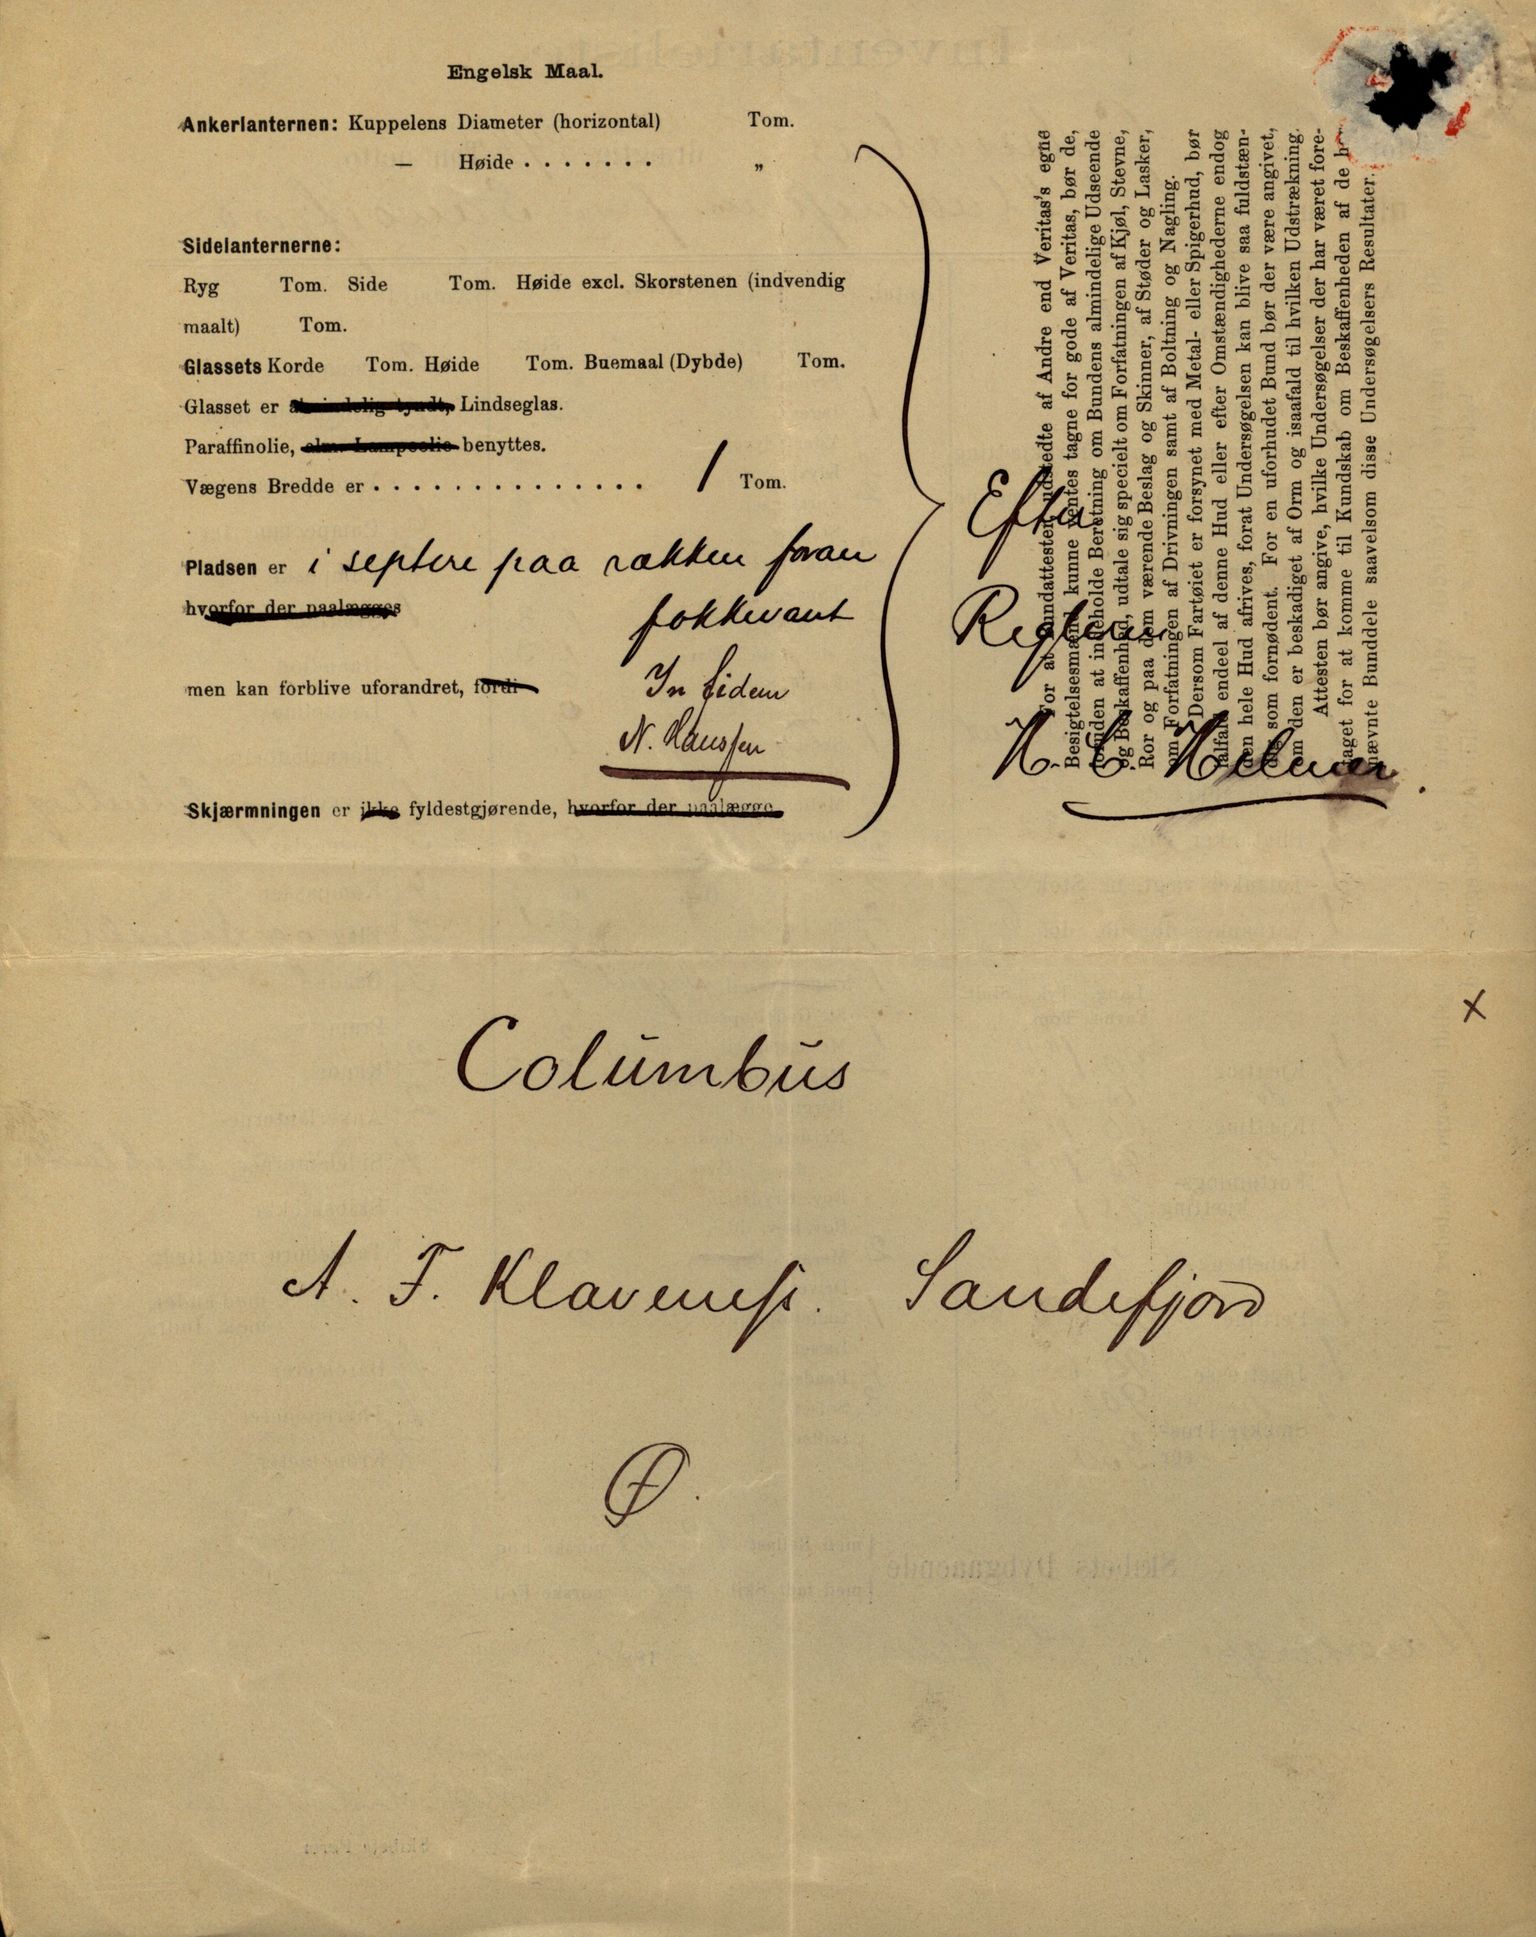 Engelsk Maal.
Ankerlanternen: Kuppelens Diameter (horizontal) Tom.
— Høide . . . . . . . „
Sidelanternerne:
Ryg Tom. Side Tom. Høide excl. Skorstenen (indvendig
maalt) Tom.
Glassets Korde Tom. Høide Tom. Buemaal (Dybde) Tom.
Glasset er almindelig tyndt, Lindseglas.
Paraffinolie, alm. Lampeolie benyttes.
Vægens Bredde er . . . . . . . . . . . . . . 1 Tom.
Pladsen er i septere paa rækken foran
hvorfor der paalægges fokkevant
men kan forblive uforandret, fordi In fidem
N. Hanssen
Skjærmningen er ikke fyldestgjørende, hvorfor der paalægge
Efter
Reglerne
H. C. Helmer.
For at Bundattester, udstedte af Andre end Veritas's egne
Besigtelsesmænd, kunne ventes tagne for gode af Veritas, bør de,
foruden at indeholde Beretning om Bundens almindelige Udseende
og Beskaffenhed, udtale sig specielt om Forfatningen af Kjøl, Stevne,
Ror og paa dem værende Beslag og Skinner, af Støder og Lasker,
om Forfatningen af Drivningen samt af Boltning og Nagling.
Dersom Fartøiet er forsynet med Metal- eller Spigerhud, bør
ialfald endeel af denne Hud eller efter Omstændighederne endog
den hele Hud afrives, forat Undersøgelsen kan blive saa fuldstæn-
dig som fornødent. For en uforhudet Bund bør der være angivet,
om den er beskadiget af Orm og isaafald til hvilken Udstrækning.
Attesten bør angive, hvilke Undersøgelser der har været fore-
taget for at komme til Kundskab om Beskaffenheden af de
nævnte Bunddele saavelsom disse Undersøgelsers Resultater.
x
Columbus
A. F. Klaveness. Sandefjord
Ø.